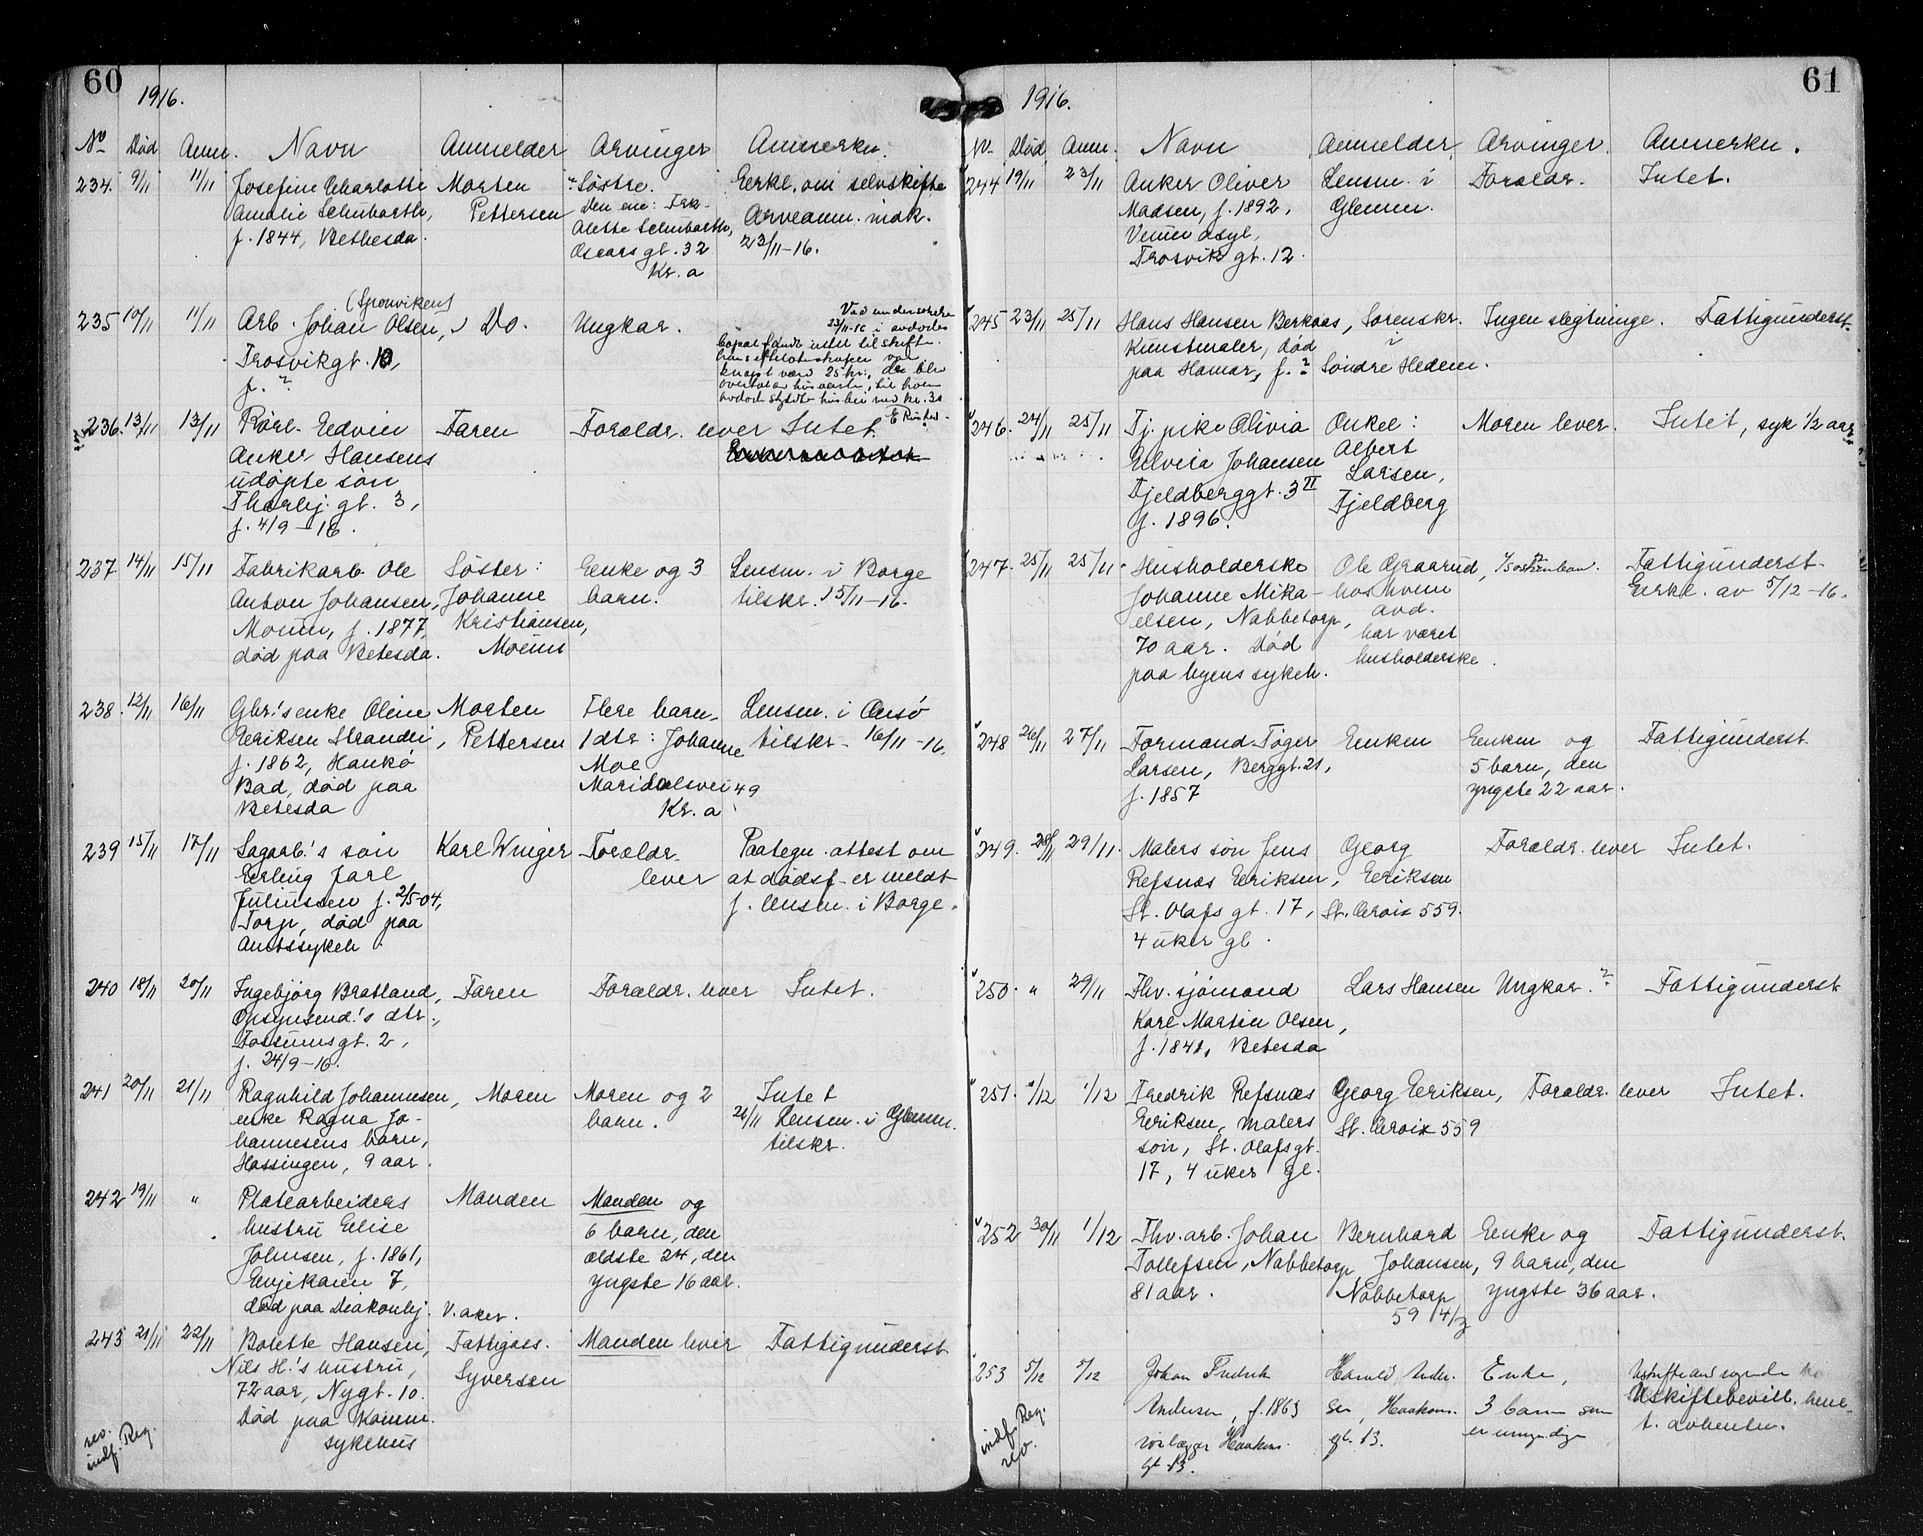 60
1916.
No Död Anm. Navn Anmelder Arvinger Anmerkn.
234. 9/11 11/11 Josefine Charlotte Morten Söstre. Erkl. om selvskifte
Amalie Schubarth, Pettersen Den ene: Frk. Arveanm. indk.
f. 1844, Bethesda. Alette Schubarth, 23/11-16.
Oscars gt. 32
Kr. a
(Sponviken)
235 10/11 11/11 Arb. Johan Olsen, Do. Ungkar. Ved undersökelse
Trosvikgt. 10, 23/11-16 i avdödes
f. ? bopæl fandt intet til skifte.
hans efterladenskaper var
knapt værd 25 kr., de blev
overtat av husverten, til hvem
avdöde skyldte husleie med kr. 30
236. 13/11 13/11 Rörl. Edvin Faren Forældr. lever Intet.
Anker Hansens
udöpte sön
Thorbj. gt. 3,
f. 4/9-16.
237 14/11 15/11 Fabrikarb. Ole Söster: Enke og 3 Lensm. i Borge
Anton Johansen, Johanne barn. tilskr. 15/11-16.
Moum, f. 1877, Kristiansen,
död paa Betesda. Moum
238. 12/11 16/11 Gbr.'s enke Oline Morten Flere barn. Lensm. i Onsö
Eriksen Strandli, Pettersen 1 dtr: Johanne tilskr. 16/11-16.
f. 1862, Hankö Moe
Bad, död paa Maridalsvei 49
Betesda Kr. a
239 15/11 17/11 Sagarb.'s sön Karl Winger Forældr. Paategn. attest om
Erling Jarl lever at dödsf. er meldt
Juliussen f. 2/5-04, f. Lensm. i Borge.
Torp, död paa
Amtssykeh.
240 18/11 20/11 Ingebjörg Bratland, Faren Forældr. lever Intet.
Opsynsend.'s dtr.,
Fossumsgt. 2,
f. 24/9-16.
241 20/11 21/11 Ragnhild Johannesen, Moren Moren og 2 Intet
enke Ragna Jo- barn. 21/11 Lensm. i Glemm.
hannesens barn, tilskr.
Hassingen, 9 aar.
242 19/11 " Platearbeiders Manden Manden og
hustru Elise 6 barn, den
Johnsen, f. 1861, ældste 24, den
Enjekaren 7, yngste 16 aar.
död paa Diakonhj. V. aker.
243 21/11 22/11 Bolette Hansen, Fattigass. Manden lever Fattigunderst.
Nils H.'s hustru, Syversen
72 aar, Nygt. 10.
Död paa Komm.
sykehus
rev.
indf. Reg.
61
1916.
No Död Anm. Navn Anmelder. Arvinger. Anmerkn.
244 19/11 23/11 Anker Oliver Lensm. i Forældr. Intet.
Madsen, f. 1892, Glemm.
Venner asyl,
Trosvik gt. 12.
245 23/11 25/11 Hans Hansen Berkaas, Sorenskr. Ingen slegtninge. Fattigunderst.
Kunstmaler, död i
paa Hamar, f. ? Söndre Hedem.
246. 24/11 25/11 Tj. pike Olivia Onkel: Moren lever. Intet, syk 1/2 aar
Elvira Johansen Albert
Fjeldberggt. 3 II Larsen,
f. 1896. Fjeldberg
247. 25/11 25/11 Husholderske Ole Graarud, Fattigunderst.
Johanne Mika- hos hvem Erkl. av 5/12-16.
elsen, Nabbetorp, avd.
70 aar. Död har været
paa byens sykeh. husholderske.
248 26/11 27/11 Formand Töger Enken Enken og Fattigunderst.
Larsen, Berggt. 21, 5 barn, den
f. 1857 yngste 22 aar.
249. 28/11 29/11. Malers sön Jens Georg Forældr. lever Intet.
Refsnæs Eriksen, Eriksen
St. Olafs gt. 17, St. Croix 559.
4 uker gl.
250. " 29/11 Fhv. sjömand Lars Hansen Ungkar. ? Fattigunderst.
Karl Martin Olsen,
f. 1841, Betesda
251. 1/12 1/12 Fredrik Refsnæs Georg Eriksen, Forældr. lever Intet.
Eriksen, malers St. Croix 559
sön, St. Olafsgt.
17, 4 uker gl.
252 30/11 1/12 Fhv. arb. Johan Bernhard Enke og Fattigunderst.
Tollefsen, Nabbetorp Johansen, 9 barn, den
81 aar. Nabbetorp yngste 36 aar.
59
253 5/12 5/12 Johan Fredrik Harald Ander- Enke,
Andersen, f. 1863 sen, Haakons. 3 barn som Uskiftebevill.
Haakons. gt. 13. er umyndige
gt. 13.
indf. Reg.
rev.